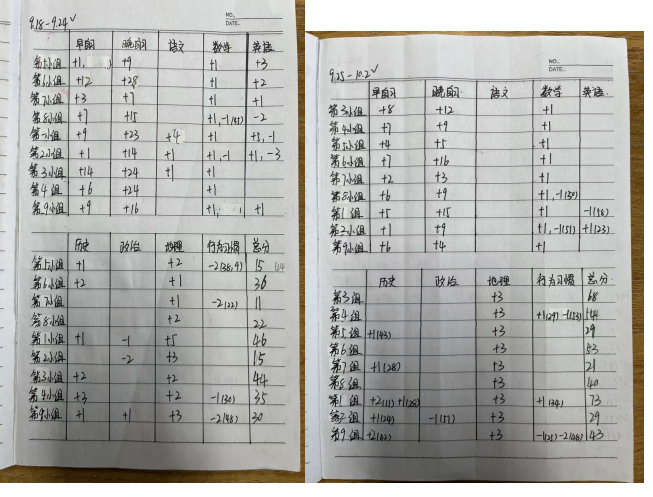 9.18-9.24√
NO.
DATE.
早自习 晚自习 语文 数学 英语
第5小组 +1, +9 +1 +3
第6小组 +12 +28 +1 +2
第7小组 +3 +7 +1 +1
第8小组 +7 +15 +1,-1(43) -2
第1小组 +9 +23 +4 +1 +3,-1
第2小组 +1 +14 +1 +1,-1 +1,-3
第3小组 +14 +24 +1 +1
第4组 +6 +24 +1
第9小组 +9 +16 +1, +1
历史 政治 地理 行为习惯 总分
第5小组 +1 +2 -2(38,9) 15
第6小组 +2 +1 36
第7小组 +1 -2(22) 11
第8小组 +2 22
第1小组 +1 -1 +5 46
第2小组 -2 +3 15
第3小组 +2 +2 44
第4小组 +3 +2 -1(30) 35
第9小组 +1 +1 +3 -2(48) 30
9.25-10.2√
NO.
DATE.
早自习 晚自习 语文 数学 英语
第3小组 +8 +12 +1
第4小组 +7 +9 +1
第5小组 +4 +5 +1
第6小组 +7 +16 +1
第7小组 +2 +3 +1
第8小组 +6 +9 +1,-1(39)
第1组 +5 +15 +1 -1(98)
第2小组 +1 +9 +1,-1(51) +1(23)
第9小组 +6 +4 +1
历史 政治 地理 行为习惯 总分
第3组 +3 68
第4组 +3 +1(29) -1(53) 54
第5组 +1(43) +3 29
第6组 +3 53
第7组 +1(28) +3 21
第8组 +3 40
第1组 +2(11) +1(28) +3 +1(34) 73
第2组 +1(24) -1(51) +3 29
第9组 +2(62) +3 -1(25) -2(48) 43